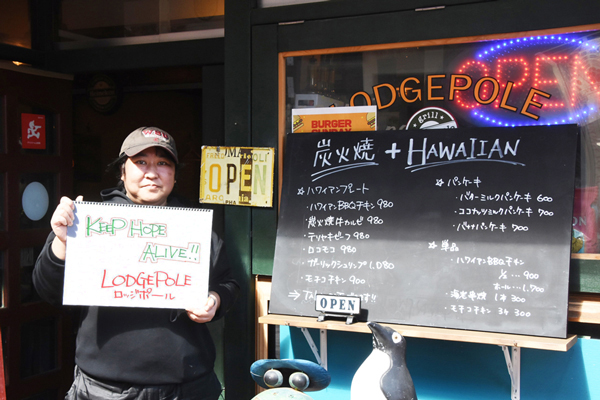 LODGEPOLE
OPEN
BURGER
SUNDAY
grill
OPEN
KEEP HOPE
ALIVE!!
LODGEPOLE
ロッジポール
炭火焼 + HAWAIIAN
☆ ハワイアンプレート
・ハワイアンBBQチキン 980
・炭火焼牛カルビ 980
・テリヤキビーフ 980
・ロコモコ 980
・ガーリックシュリンプ 1,080
・モチコチキン 900
☆ パンケーキ
・バターミルクパンケーキ 600
・ココナッツミルクパンケーキ 700
・バナナパンケーキ 700
☆ 単品
・ハワイアンBBQチキン
½ … 900
ホール … 1,700
・モチコチキン 3コ 300
OPEN